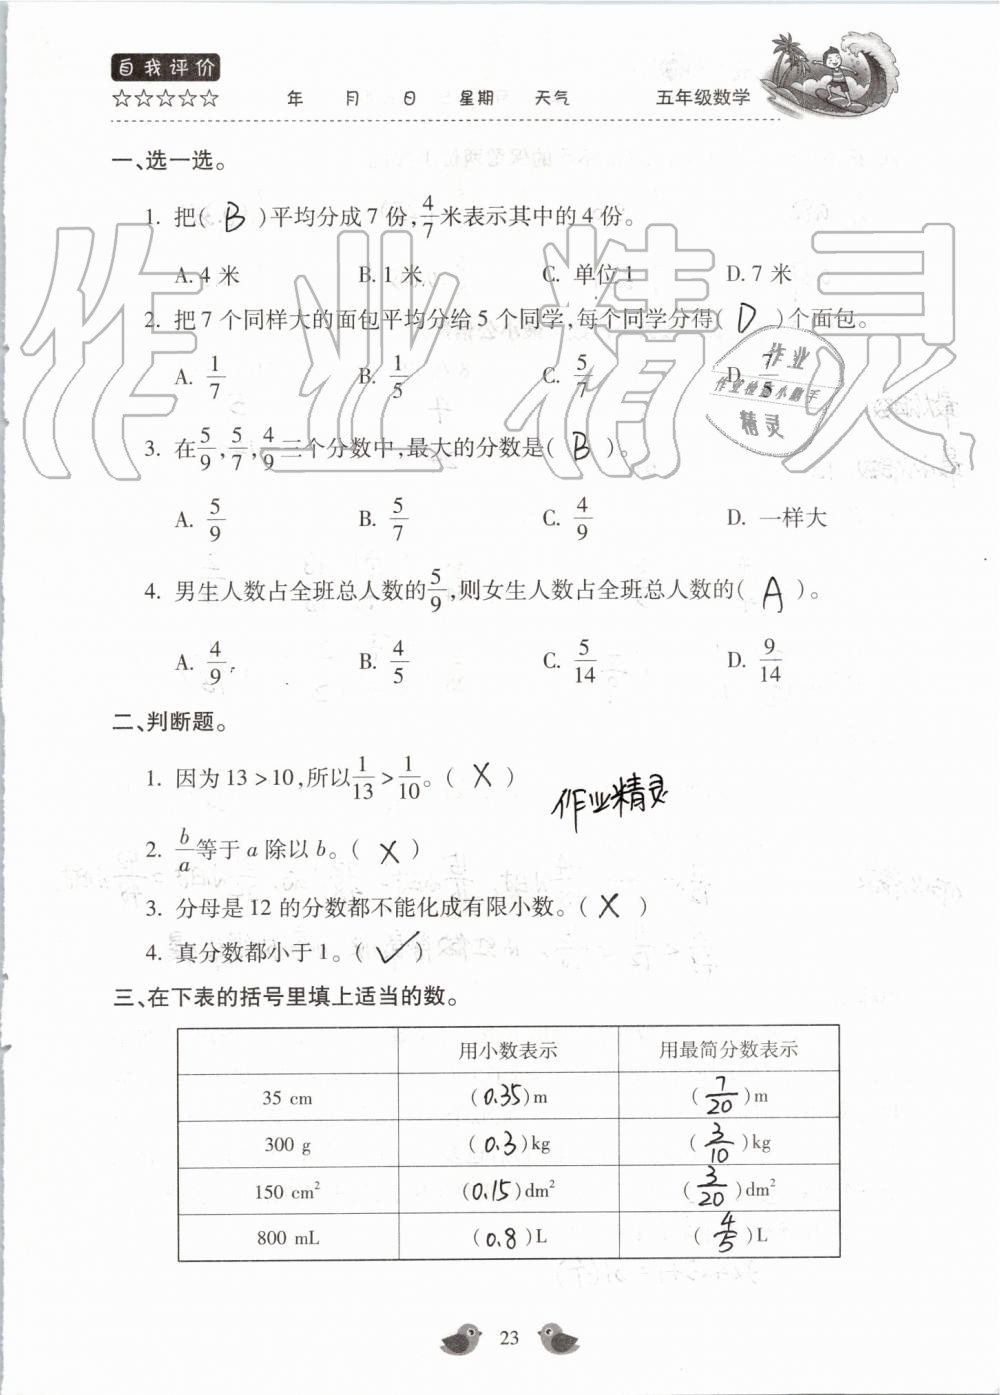 自我评价
☆☆☆☆☆ 年 月 日 星期 天气 五年级数学
一、选一选。
1. 把( B )平均分成7份,4/7米表示其中的4份。
A. 4米 B. 1米 C. 单位1 D. 7米
2. 把7个同样大的面包平均分给5个同学,每个同学分得( D )个面包。
A. 1/7 B. 1/5 C. 5/7 D. 7/5
3. 在5/9,5/7,4/9三个分数中,最大的分数是( B )。
A. 5/9 B. 5/7 C. 4/9 D. 一样大
4. 男生人数占全班总人数的5/9,则女生人数占全班总人数的( A )。
A. 4/9 B. 4/5 C. 5/14 D. 9/14
二、判断题。
1. 因为13>10,所以1/13>1/10。( X )
作业精灵
2. b/a等于a除以b。( X )
3. 分母是12的分数都不能化成有限小数。( X )
4. 真分数都小于1。( ✓ )
三、在下表的括号里填上适当的数。
用小数表示 用最简分数表示
35 cm (0.35)m (7/20)m
300 g (0.3)kg (3/10)kg
150 cm² (0.15)dm² (3/20)dm²
800 mL (0.8)L (4/5)L
23
作业精灵
作业
作业检查小助手
精灵